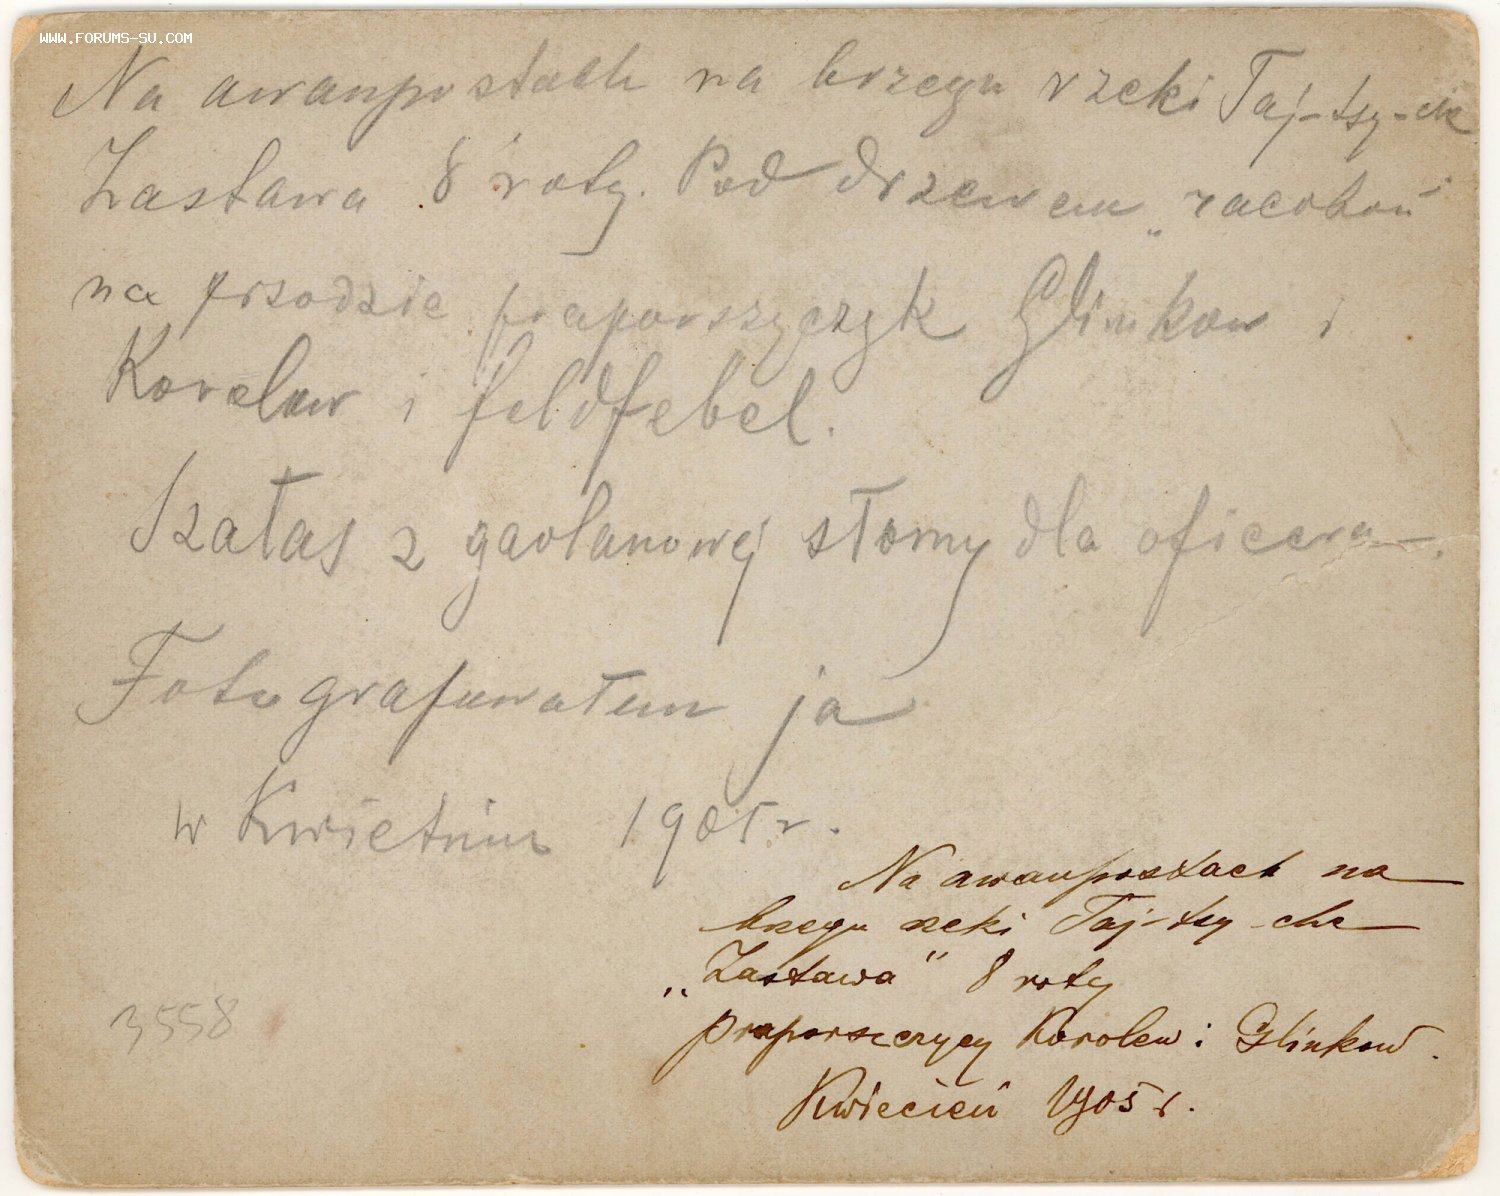 WWW.FORUMS-SU.COM
Na awanpostach na brzegu rzeki Taj-tsy-che
Zastawa 8 roty. Pod drzewem
na przodzie praporszczyk Glinkow i
Korolew i feldfebel.
Szałas z gaolanowej słomy dla oficera.
Fotografowałem ja
w Kwietniu 1905 r.
Na awanpostach na
brzegu rzeki Taj-tsy-che
„Zastawa" 8 roty
praporszczycy Korolew i Glinkow.
Kwiecień 1905 r.
3558